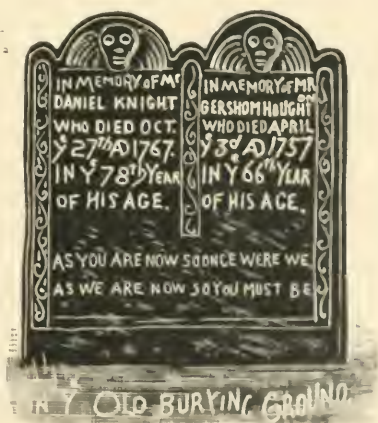 IN MEMORY of Mr
DANIEL KNIGHT
WHO DIED OCT.
Ye 27Th AD 1767.
IN Ye 78Th YEAR
OF HIS AGE.
IN MEMORY of MR
GERSHOM HOUGHTon
WHO DIED APRIL
Ye 3d AD 1757
IN Ye 66Th YEAR
OF HIS AGE.
AS YOU ARE NOW SO ONCE WERE WE
AS WE ARE NOW SO YOU MUST BE
IN Ye OLD BURYING GROUND.